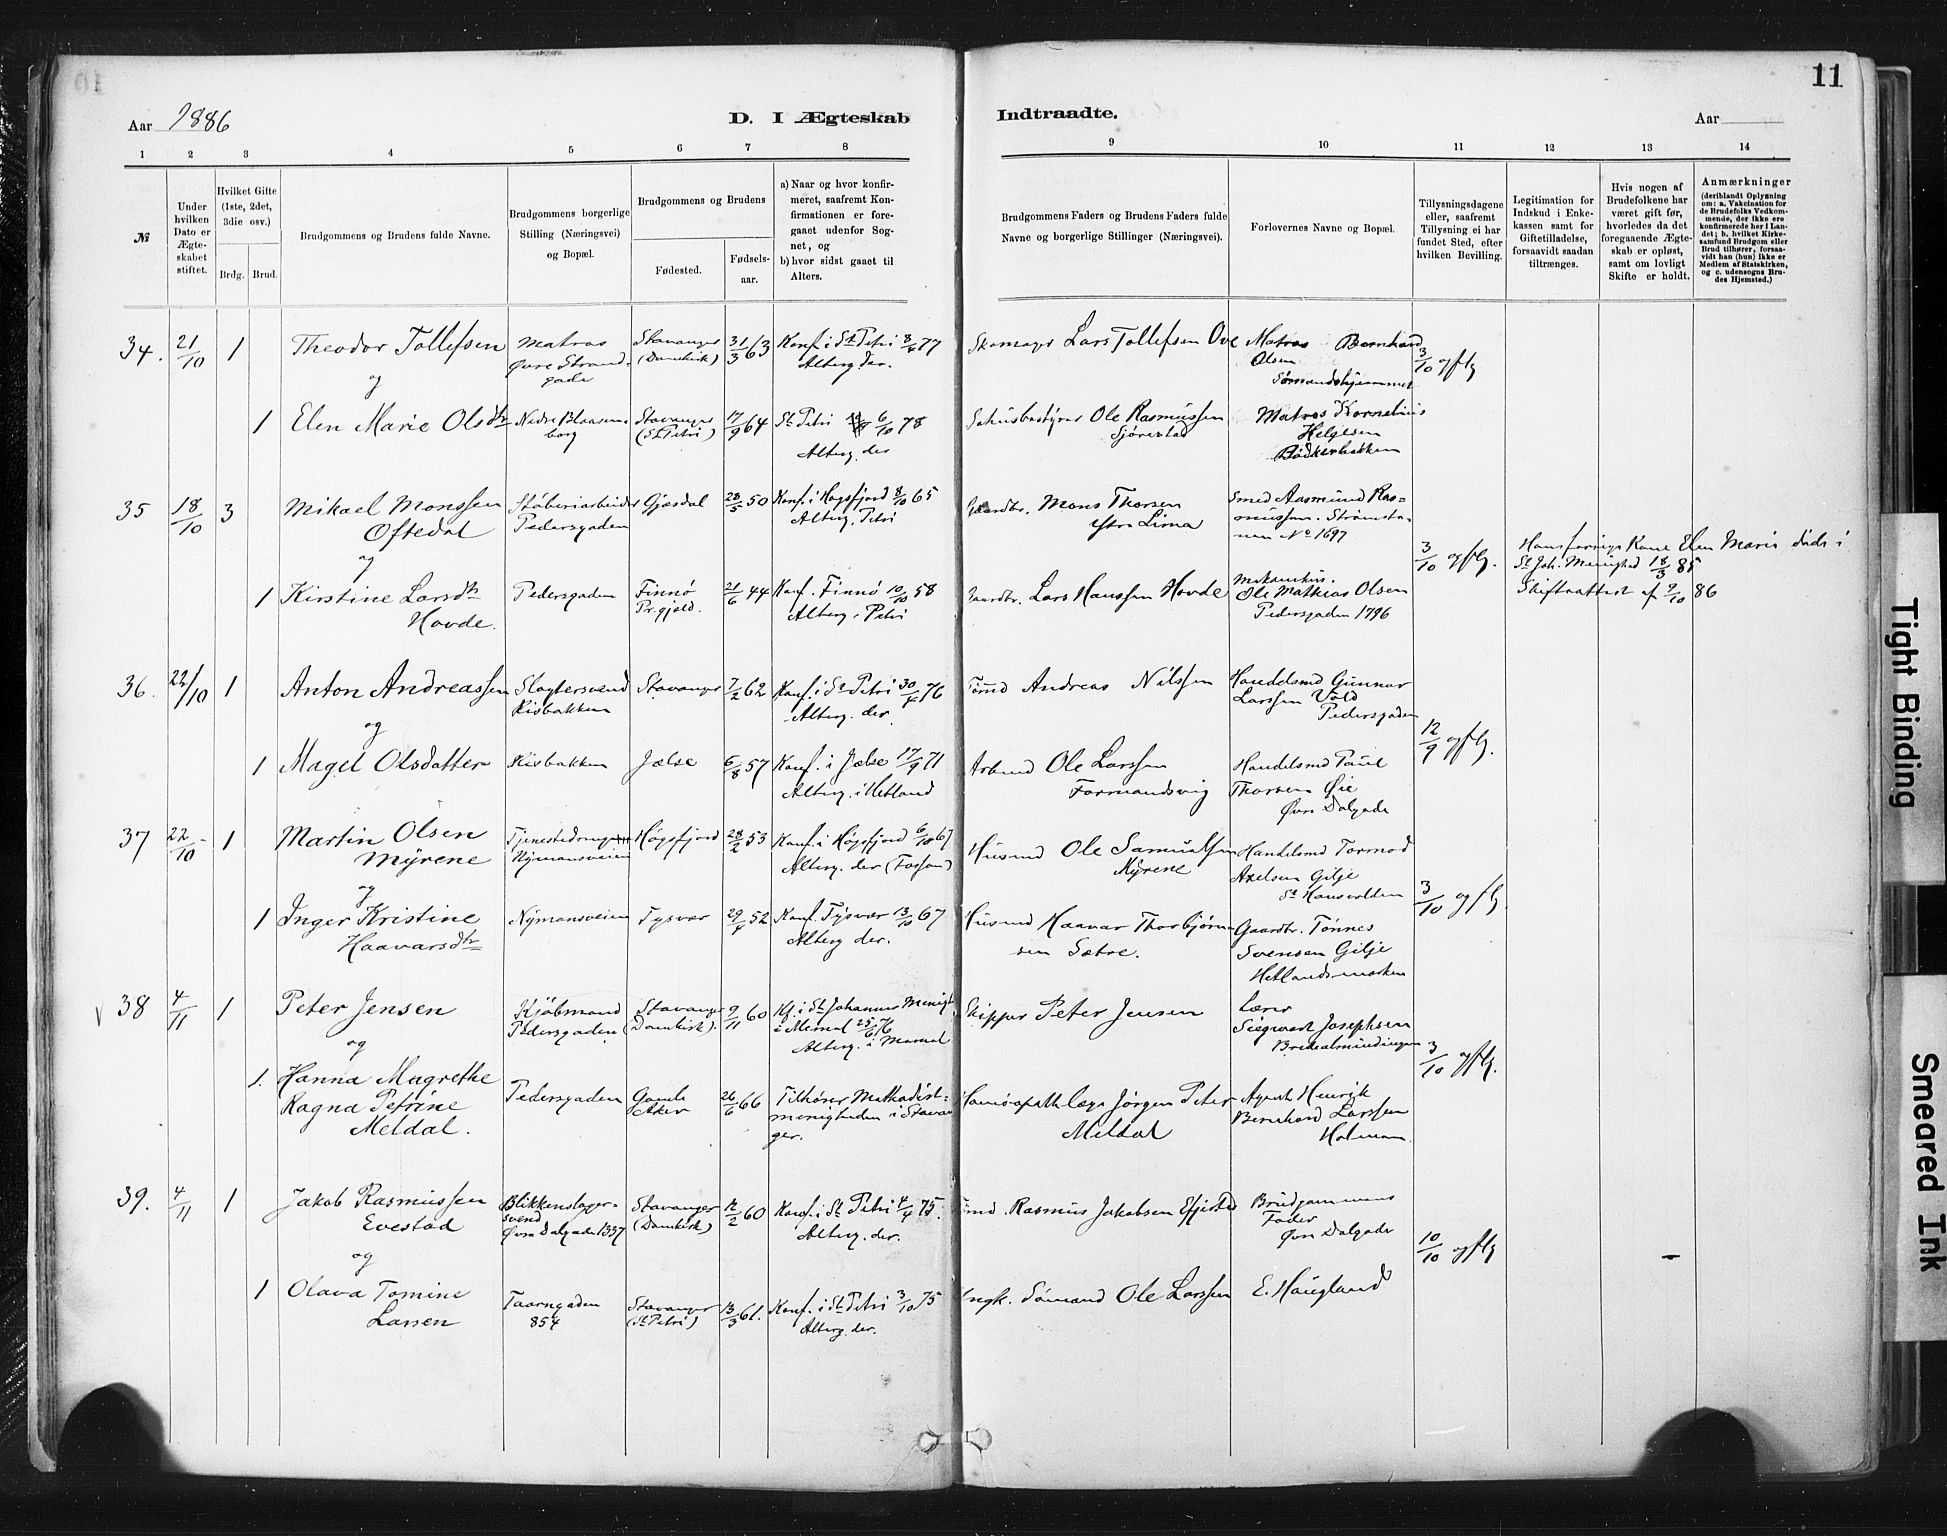 11
Aar 1886
D. I Ægteskab
Indtraadte.
Aar
1 2 3 4 5 6 7 8 9 10 11 12 13 14
№
Under hvilken Dato er Ægteskabet stiftet.
Hvilket Gifte (1ste, 2det, 3die osv.)
Brdg. Brud.
Brudgommens og Brudens fulde Navne.
Brudgommens borgerlige Stilling (Næringsvei) og Bopæl.
Brudgommens og Brudens
Fødested.
Fødselsaar.
a) Naar og hvor konfirmeret, saafremt Konfirmationen er foregaaet udenfor Sognet, og
b) hvor sidst gaaet til Alters.
Brudgommens Faders og Brudens Faders fulde Navne og borgerlige Stillinger (Næringsvei).
Forlovernes Navne og Bopæl.
Tillysningsdagene eller, saafremt Tillysning ei har fundet Sted, efter hvilken Bevilling.
Legitimation for Indskud i Enkekassen samt for Giftetilladelse, forsaavidt saadan tiltrænges.
Hvis nogen af Brudefolkene har været gift før, hvorledes da det foregaaende Ægteskab er opløst, samt om lovligt Skifte er holdt.
Anmærkninger
(deriblandt Oplysning om: a. Vakcination for de Brudefolks Vedkommende, der ikke ere konfirmerede her i Landet; b. hvilket Kirkesamfund Brudgom eller Brud tilhører, forsaavidt han (hun) ikke er Medlem af Statskirken, og c. udensogns Brudes Hjemsted.)
34. 21/10 1 Theodor Tollefsen Matros Øvre Strandgade Stavanger (Domkirk) 31/3 63 Konf. i St Petri 8/4 77 Alterg. der. Skomager Lars Tollefsen Matros Bernhard Olsen Sømandshjemmet 3/10 og flg
og
1 Elen Marie Olsdtr Nedre Blaasenborg Stavanger (St Petri) 17/9 64 St Petri 6/10 78 Alterg. der Ole Rasmussen Sjørestad Matros Kornelius Helgesen Bødkerbakken
35 18/10 3 Mikael Monssen Oftedal Støberiarbeider Pedersgaden Gjæsdal 28/5 50 Konf. i Høgsfjord 8/10 65 Alterg. Petri Gaardbr. Mons Thorsen Lima Smed Aasmund Rasmussen. No 1697 3/10 og flg.
og
Kone Elen Marie døde i St Joh. Menighed 18/3 85 Skifteattest af 9/10 86
1 Kirstine Larsdtr Hovde. Pedersgaden Finnø Prgjeld. 21/6 44 Konf. Finnø 10/10 58 Alterg. Petri Gaardbr. Lars Hanssen Hovde Ole Mathias Olsen Pedersgaden 1796
36. 22/10 1 Anton Andreassen Slagtersvend Risbakken Stavanger 7/2 62 Konf. i St Petri 30/4 76 Alterg. der. Andreas Nilssen Handelsmd Gunnar Larssen Vold Pedersgaden 12/9 og flg.
og
1 Magel Olsdatter Risbakken Jælse 6/8 57 Konf. i Jælse 17/9 71 Alterg. i Hetland Arbmd Ole Larssen Formandsvig Handelsmd Paul Thorsen Øie Øvre Dalgade
37 22/10 1 Martin Olsen Myrene Tjenestedreng Nymansveien Høgsfjord 28/2 53 Konf. i Høgsfjord 6/10 67 Alterg. der (Fossan) Husmd Ole Samuelsen Myrene Handelsmd Tormod Axelsen Gilje St Hansvolden 3/10 og flg.
og
1 Inger Kristine Haavarsdtr Nymansveien Tysvær 29/4 52 Konf. Tysvær 13/10 67 Alterg der. Husmd Haavar Thorbjørnsen Sætre. Gaardbr. Tønnes Svensen Gilje Hetlandsmarken
38 4/11 1 Peter Jensen Kjøbmand Pedersgaden Stavanger (Domkirk). 9/11 60 Kf. i St Johannes Menigh. i Memel 25/6 76 Alterg. i Memel Skipper Peter Jensen Lærer Siegwart Josephsen Bredealmindingen 3/10 og flg.
og
1. Hanna Magrethe Ragna Petrine Meldal. Pedersgaden Gamle Aker 26/6 66 Tilhører Methodistmenigheden i Stavanger. Homøopath læge Jørgen Peter Meldal Agent Henrik Bernhard Larssen Holmen
39. 4/11 1 Jakob Rasmussen Evestad Blikkenslagersvend Øvre Dalgade 1337 Stavanger (Domkirk) 12/2 60 Konf. i St Petri 4/4 75. Alterg. der. Rasmus Jakobsen Brudgommens Fader Øvre Dalgade 10/10 og flg
og
1 Olava Tomine Larsen Taarngaden 854 Stavanger (St Petri) 13/3 61. Konf. i St Petri 3/10 75 Alterg. der. Sømand Ole Larssen E. Haugland
Tight Binding
Smeared Ink